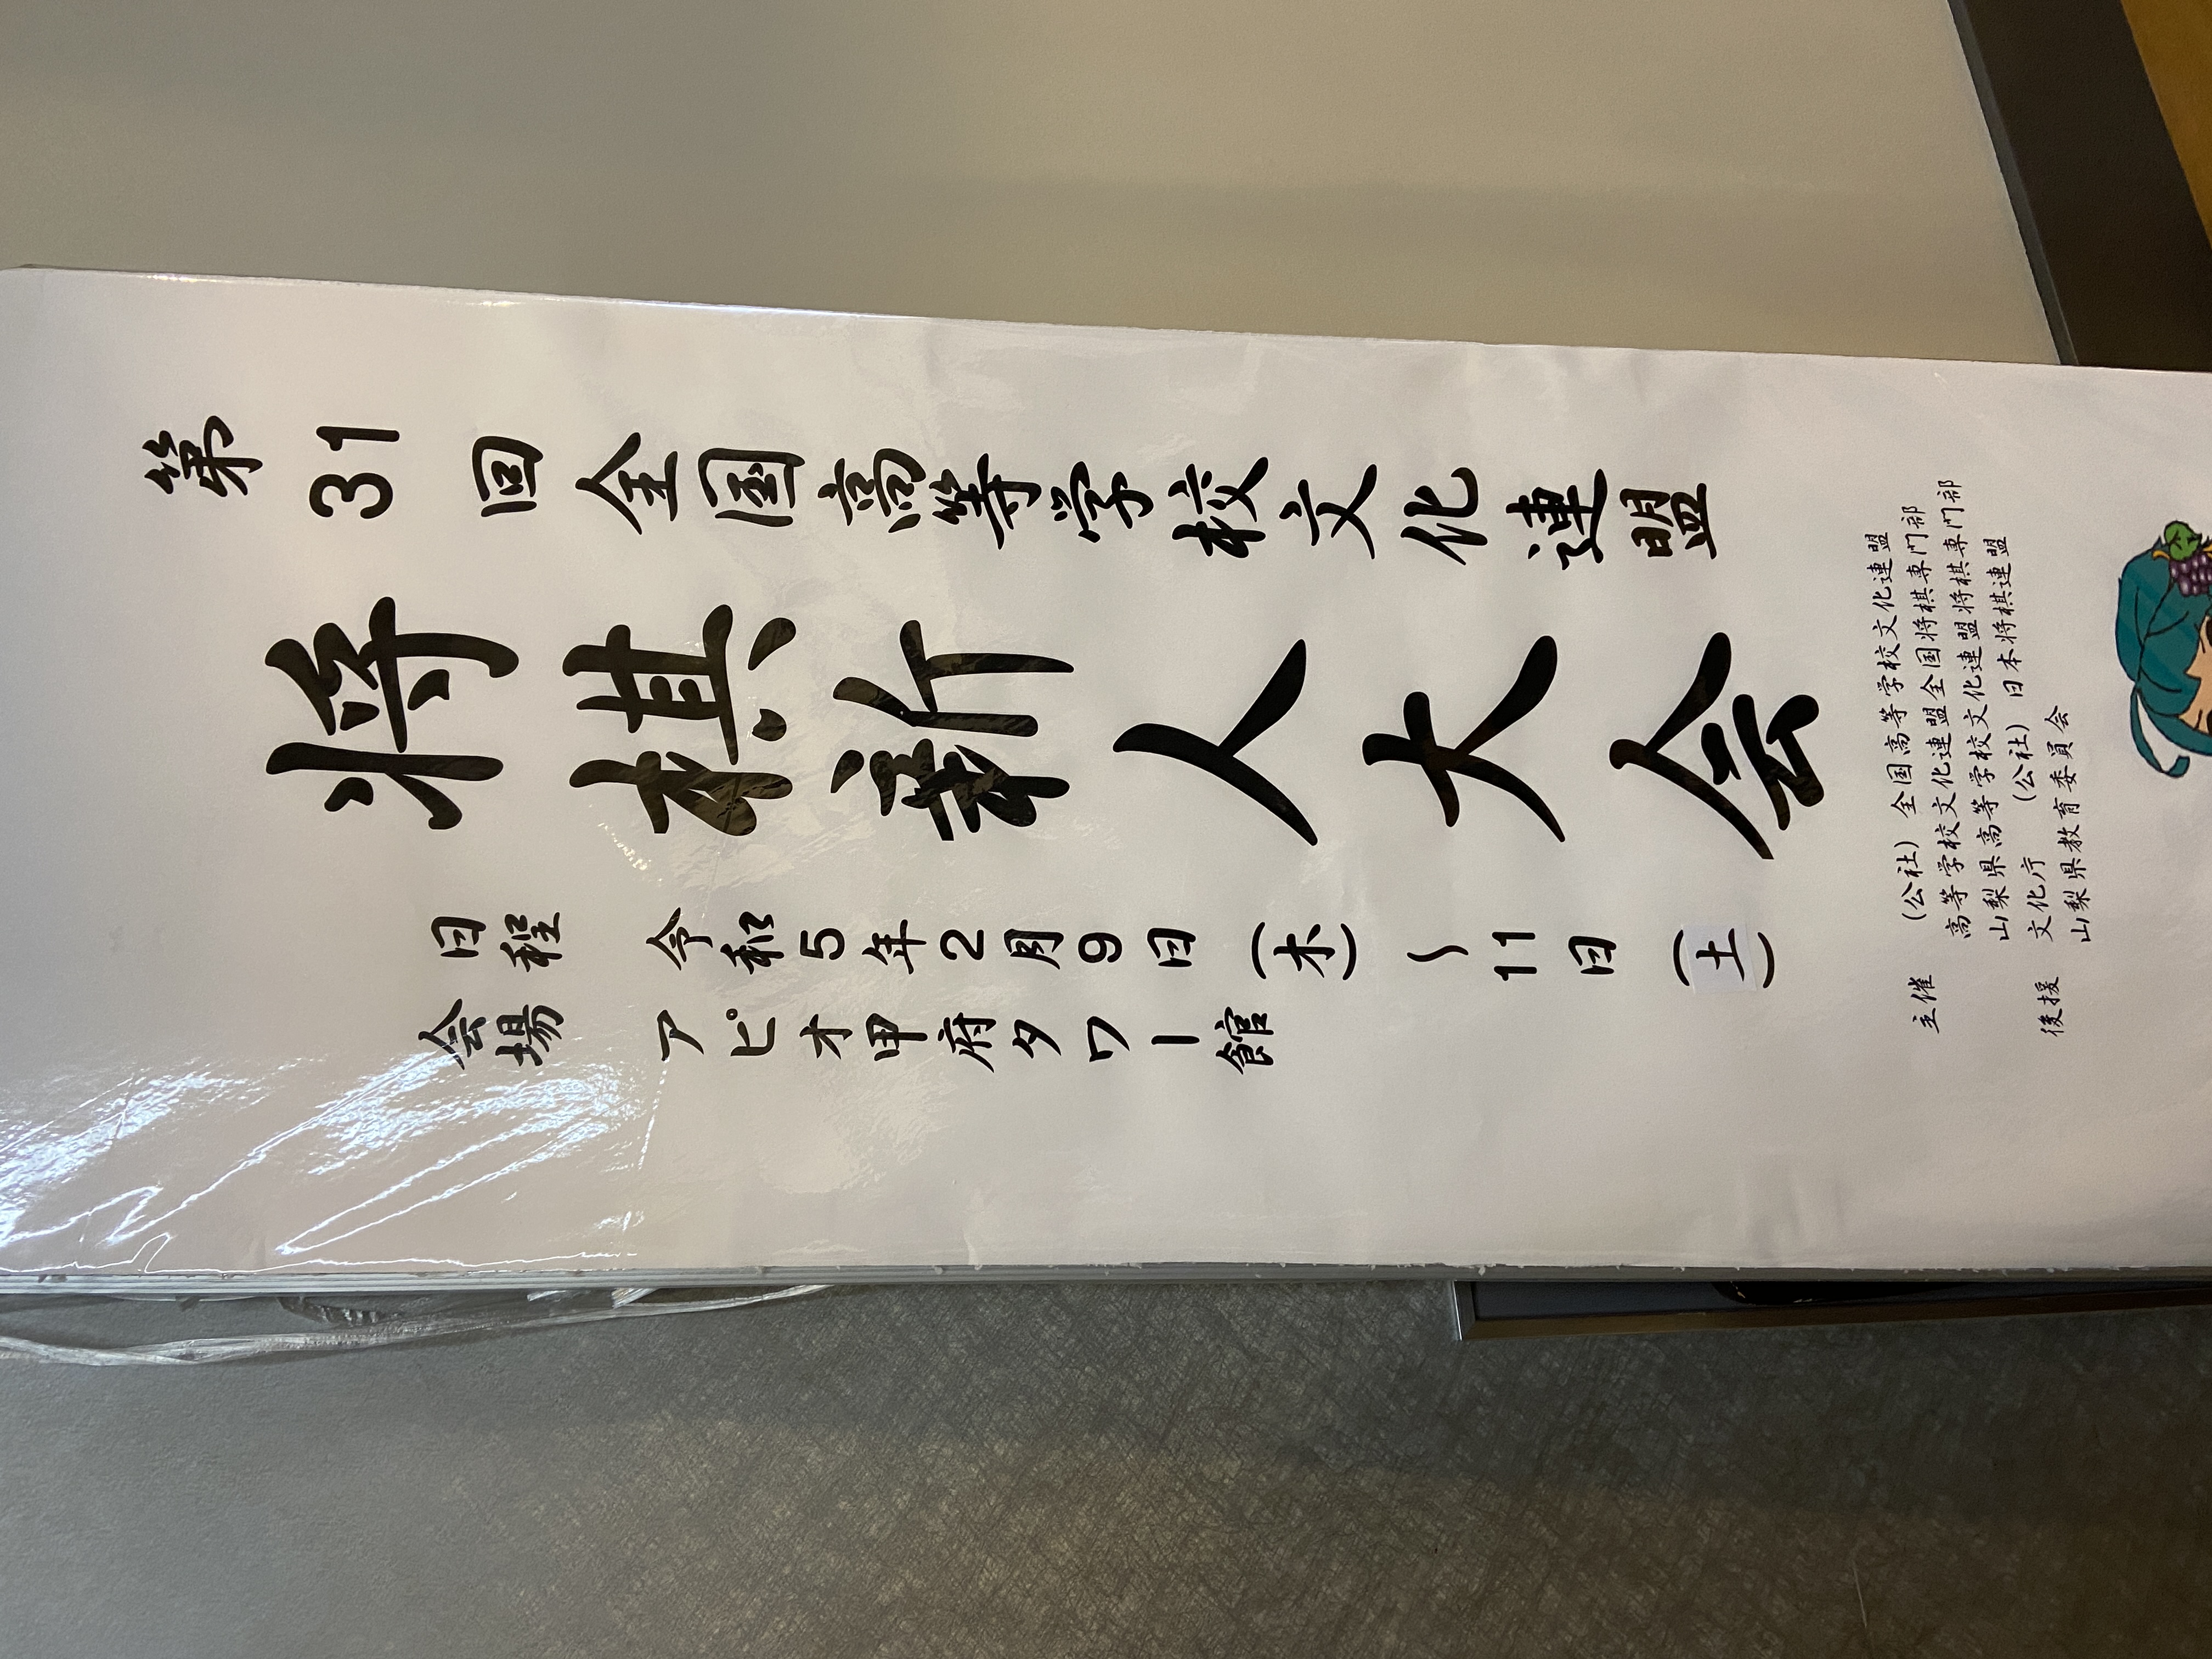 第31回全国高等学校文化連盟
将棋新人大会
日程 令和5年2月9日(木)~11日(土)
会場 アピオ甲府タワー館
主催
(公社)全国高等学校文化連盟
高等学校文化連盟全国将棋専門部
山梨県高等学校文化連盟将棋専門部
(公社)日本将棋連盟
後援
文化庁
山梨県教育委員会